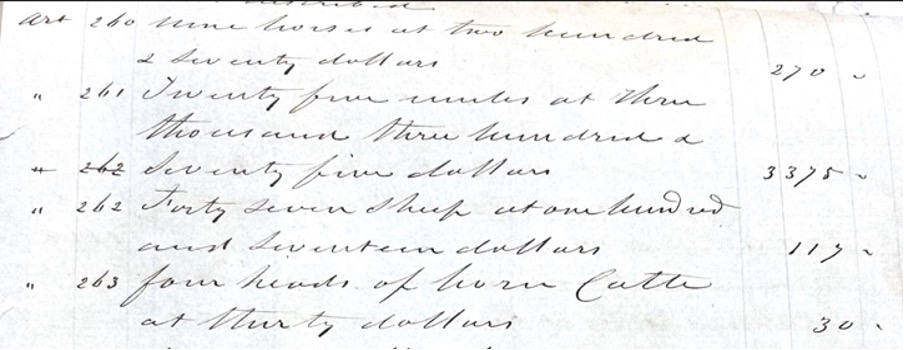 described
Art 260 nine horses at two hundred
& Seventy dollars 270 "
" 261 Twenty five mules at three
thousand three hundred &
" 262 Seventy five dollars 3375 "
" 262 Forty seven Sheep at one hundred
and Seventeen dollars 117 "
" 263 four heads of horn Cattle
at thirty dollars 30 "